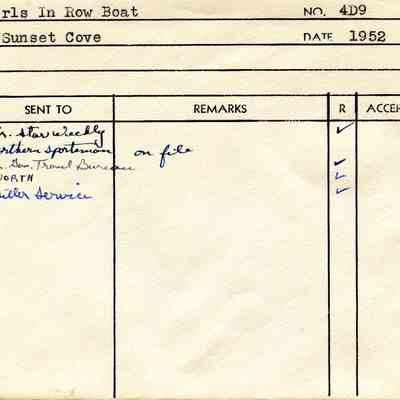 rls In Row Boat NO. 4D9
Sunset Cove DATE 1952
SENT TO REMARKS R ACCEP
r. Star Weekly
orthern Sportsman on file
Gov. Travel Bureau
NORTH
Miller Service